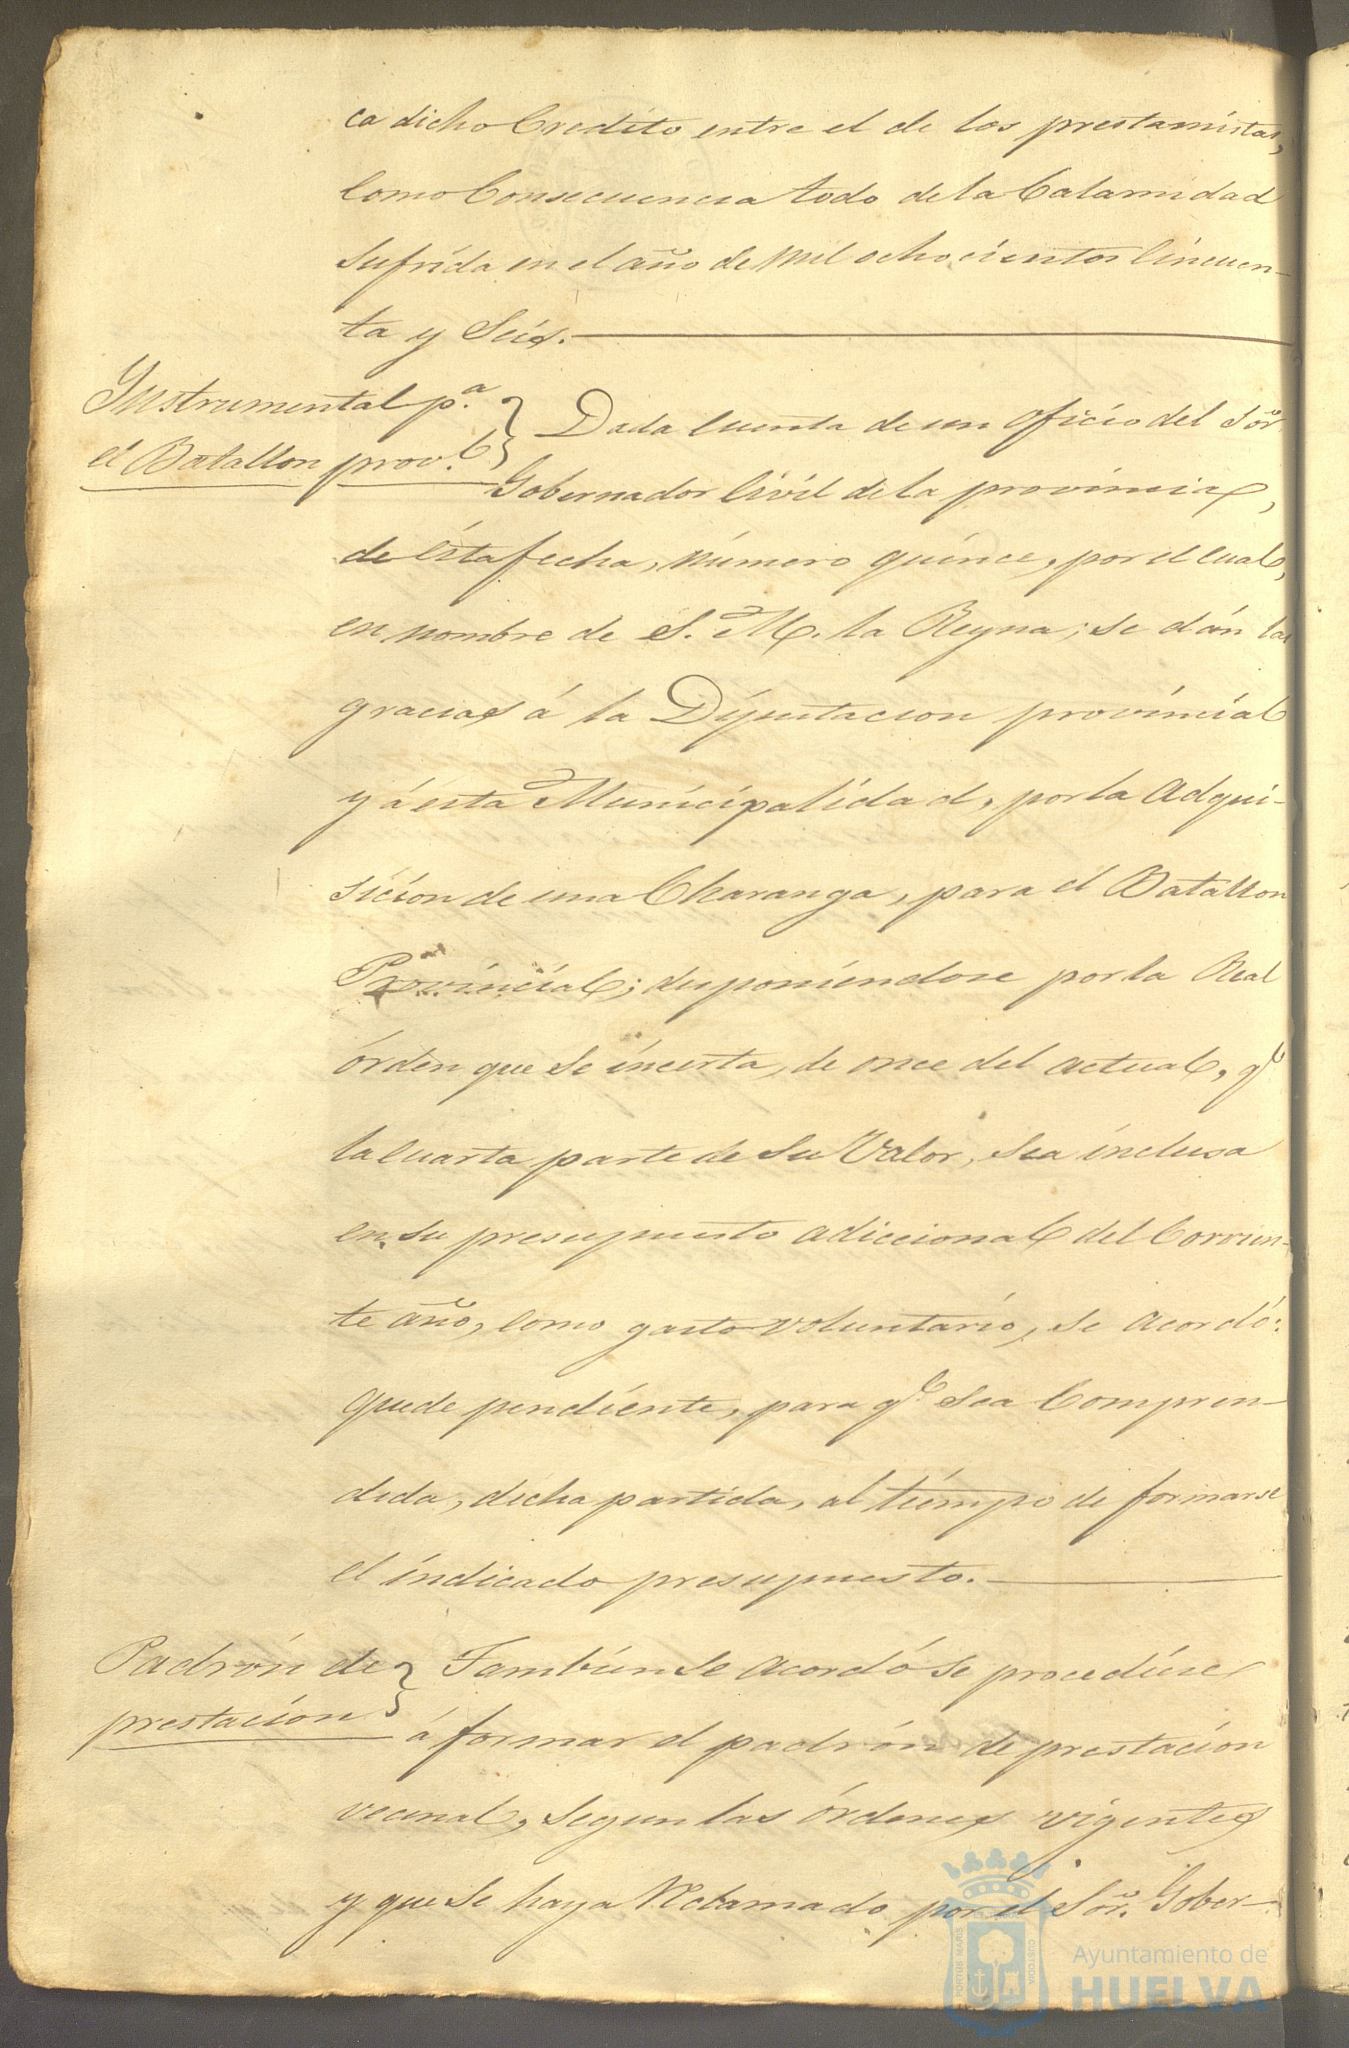 ca dicho Credito, entre el de los prestamistas,
Como Consecuencia todo de la Calamidad
Sufrida en el año de Mil ochocientos Cincuen-
ta y Seis.
Instrumental p.ª
el Batallon prov.l
Dada Cuenta de un oficio del Sor.
Gobernador Civil de la provincia,
de esta fecha, número quince, por el cual,
en nombre de S. M. la Reyna; se dán las
gracias á la Diputacion provincial
y á esta Municipalidad, por la Adqui-
sicion de una Charanga, para el Batallon
Provincial; disponiendose por la Real
órden que se incerta, de once del actual, q.e
la Cuarta parte de Su Valor, Sea inclusa
en su presupuesto adiccional del Corrien-
te año, Como gasto voluntario, se Acordó:
quede pendiente, para q.e Sea Compren-
dida, dicha partida, al tiempo de formarse
el indicado presupuesto.
Padrón de
prestacion
Tambien Se Acordó se procediese
á formar el padrón de prestacion
vecinal, Segun las órdenes vigentes
y que Se haya Reclamado por el Sor. Gober-
PORTUS MARIS
CUSTODIA
Ayuntamiento de
HUELVA